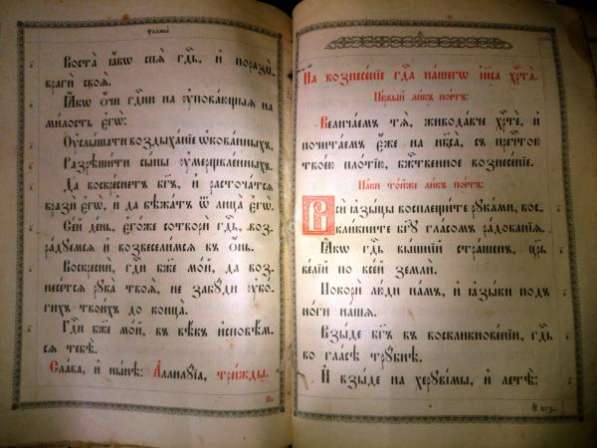 Воста̀ ꙗ҆́кѡ спѧ̀ гдⷭ҇ь, и҆ поразѝ
врагѝ своѧ̑.
Ꙗ҆́кѡ ѻ҆́чи гдⷭ҇ни на ᲂу҆пова́ющыѧ на
ми́лость є҆гѡ̀:
Оу҆слы́шати воздыха́нїе ѡ҆кова́нныхъ,
Разрѣши́ти сы́ны ᲂу҆мерщвле́нныхъ.
Да воскрⷭ҇нетъ бг҃ъ, и҆ расточа́тсѧ
вразѝ є҆гѡ̀, и҆ да бѣжа́тъ ѿ лица̀ є҆гѡ̀.
Се́й де́нь, є҆го́же сотворѝ гдⷭ҇ь, воз-
ра́дꙋемсѧ и҆ возвесели́мсѧ въ ѻ҆́нь.
Воскреснѝ, гдⷭ҇и бж҃е мо́й, да воз-
несе́тсѧ рꙋка̀ твоѧ̀, не забꙋ́ди ᲂу҆бо́-
гихъ твои́хъ до конца̀.
Гдⷭ҇и бж҃е мо́й, въ вѣ́къ и҆сповѣ́м-
сѧ тебѣ̀.
Сла́ва, и҆ ны́нѣ: А҆ллилꙋ́їа, три́жды.
На вознесе́нїе гдⷭ҇а на́шегѡ і҆и҃са хрⷭ҇та̀.
Пе́рвый ли́къ пое́тъ:
Велича́емъ тѧ̀, живода́вче хрⷭ҇тѐ, и҆
почита́емъ є҆́же на нб҃са̀, съ пречⷭ҇тою
твое́ю пло́тїю, бжⷭ҇твенное вознесе́нїе.
Па́ки то́йже ли́къ пое́тъ:
Всѝ ꙗ҆зы́цы восплещи́те рꙋка́ми, вос-
кли́кните бг҃ꙋ гла́сомъ ра́дованїѧ.
Ꙗ҆́кѡ гдⷭ҇ь вы́шнїй стра́шенъ, цр҃ь
ве́лїй по все́й землѝ.
Покорѝ лю́ди на́мъ, и҆ ꙗ҆зы́ки под̾
но́ги на́шѧ.
Взы́де бг҃ъ въ воскликнове́нїи, гдⷭ҇ь
во гла́сѣ трꙋ́бнѣ.
И҆ взы́де на херꙋві́мы, и҆ летѣ̀: